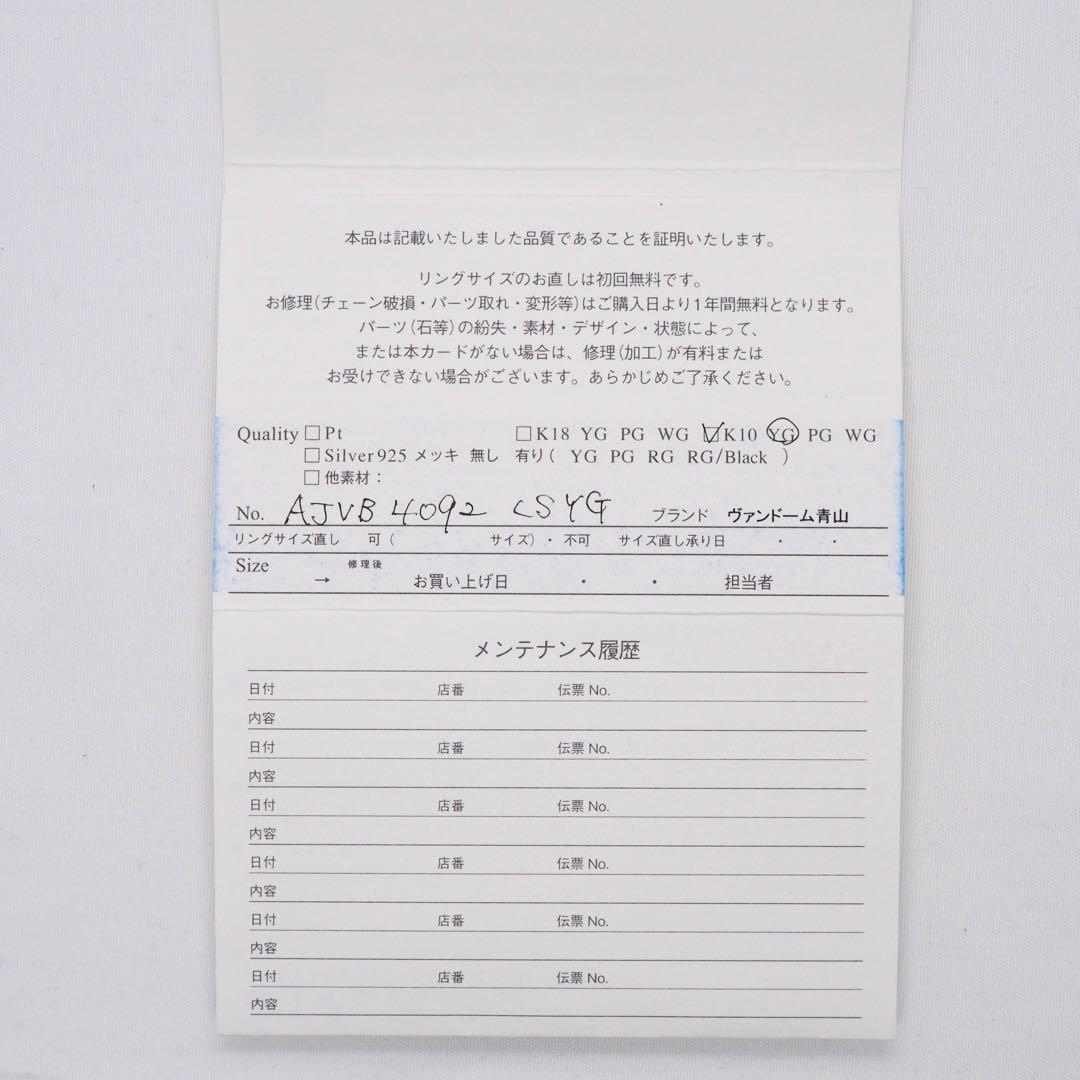 本品は記載いたしました品質であることを証明いたします。
リングサイズのお直しは初回無料です。
お修理(チェーン破損・パーツ取れ・変形等)はご購入日より1年間無料となります。
パーツ(石等)の紛失・素材・デザイン・状態によって、
または本カードがない場合は、修理(加工)が有料または
お受けできない場合がございます。あらかじめご了承ください。
Quality □Pt □K18 YG PG WG ☑K10 YG PG WG
□Silver925 メッキ 無し 有り( YG PG RG RG/Black )
□他素材:
No. AJVB 4092 LSYG ブランド ヴァンドーム青山
リングサイズ直し 可( サイズ)・不可 サイズ直し承り日 ・ ・
Size → 修理後 お買い上げ日 ・ ・ 担当者
メンテナンス履歴
日付 店番 伝票 No.
内容
日付 店番 伝票 No.
内容
日付 店番 伝票 No.
内容
日付 店番 伝票 No.
内容
日付 店番 伝票 No.
内容
日付 店番 伝票 No.
内容